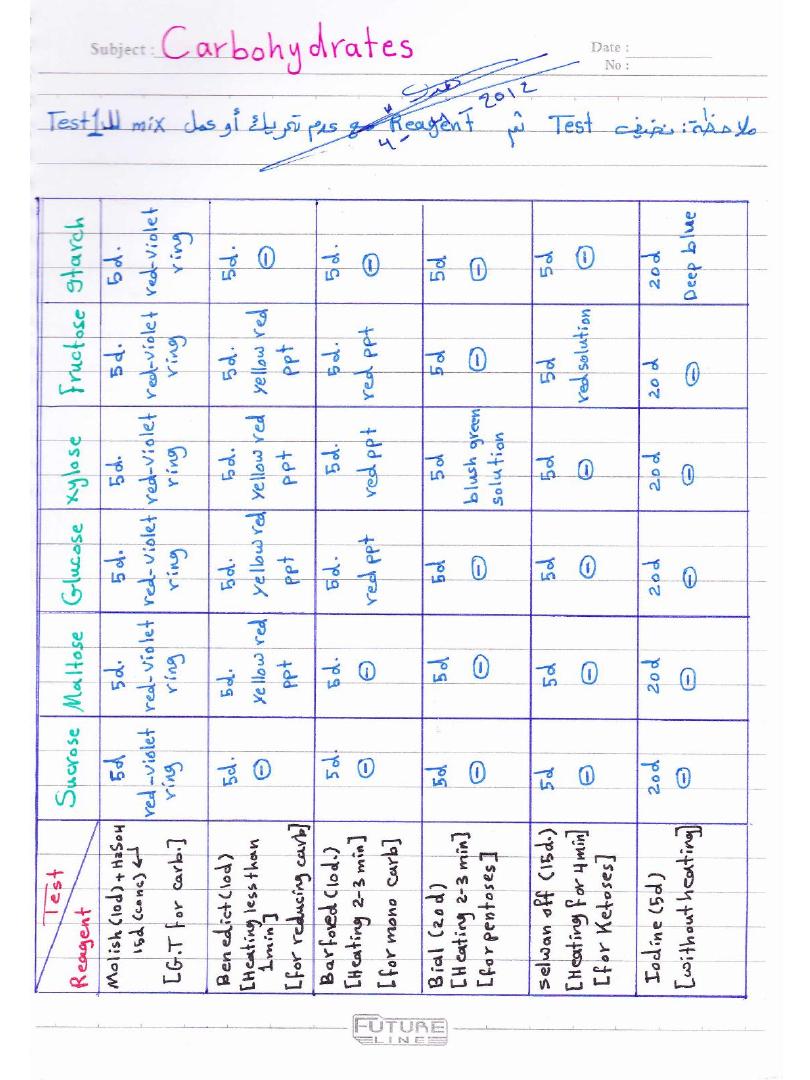 Subject : Carbohydrates
Date :
No :
2012
ملاحظة: نضيف Test ثم Reagent مع عدم تحريك أو عمل mix للـ Test1
Test
Reagent
Sucrose
Maltose
Glucose
Xylose
Fructose
starch
Molish (10d) + H2SO4
15d (conc)
[G.T for carb.]
5d
red-violet
ring
5d.
red-violet
ring
5d.
red-violet
ring
5d.
red-violet
ring
5d.
red-violet
ring
5d.
red-violet
ring
Benedict (10d)
[Heating less than
1min]
[for reducing carb]
5d.
-
5d.
yellow red
ppt
5d.
yellow red
ppt
5d.
yellow red
ppt
5d.
yellow red
ppt
5d.
-
Barfoved (10d.)
[Heating 2-3 min]
[for mono carb]
5d.
-
5d.
-
5d.
red ppt
5d.
red ppt
5d.
red ppt
5d.
-
Bial (20d)
[Heating 2-3 min]
[for pentoses]
5d
-
5d
-
5d
-
5d
blush green
solution
5d
-
5d
-
selwan off (15d.)
[Heating for 4min]
[for Ketoses]
5d
-
5d
-
5d
-
5d
-
5d
red solution
5d
-
Iodine (5d)
[without heating]
20d
-
20d
-
20d
-
20d
-
20d
-
20d
Deep blue
FUTURE
LINE